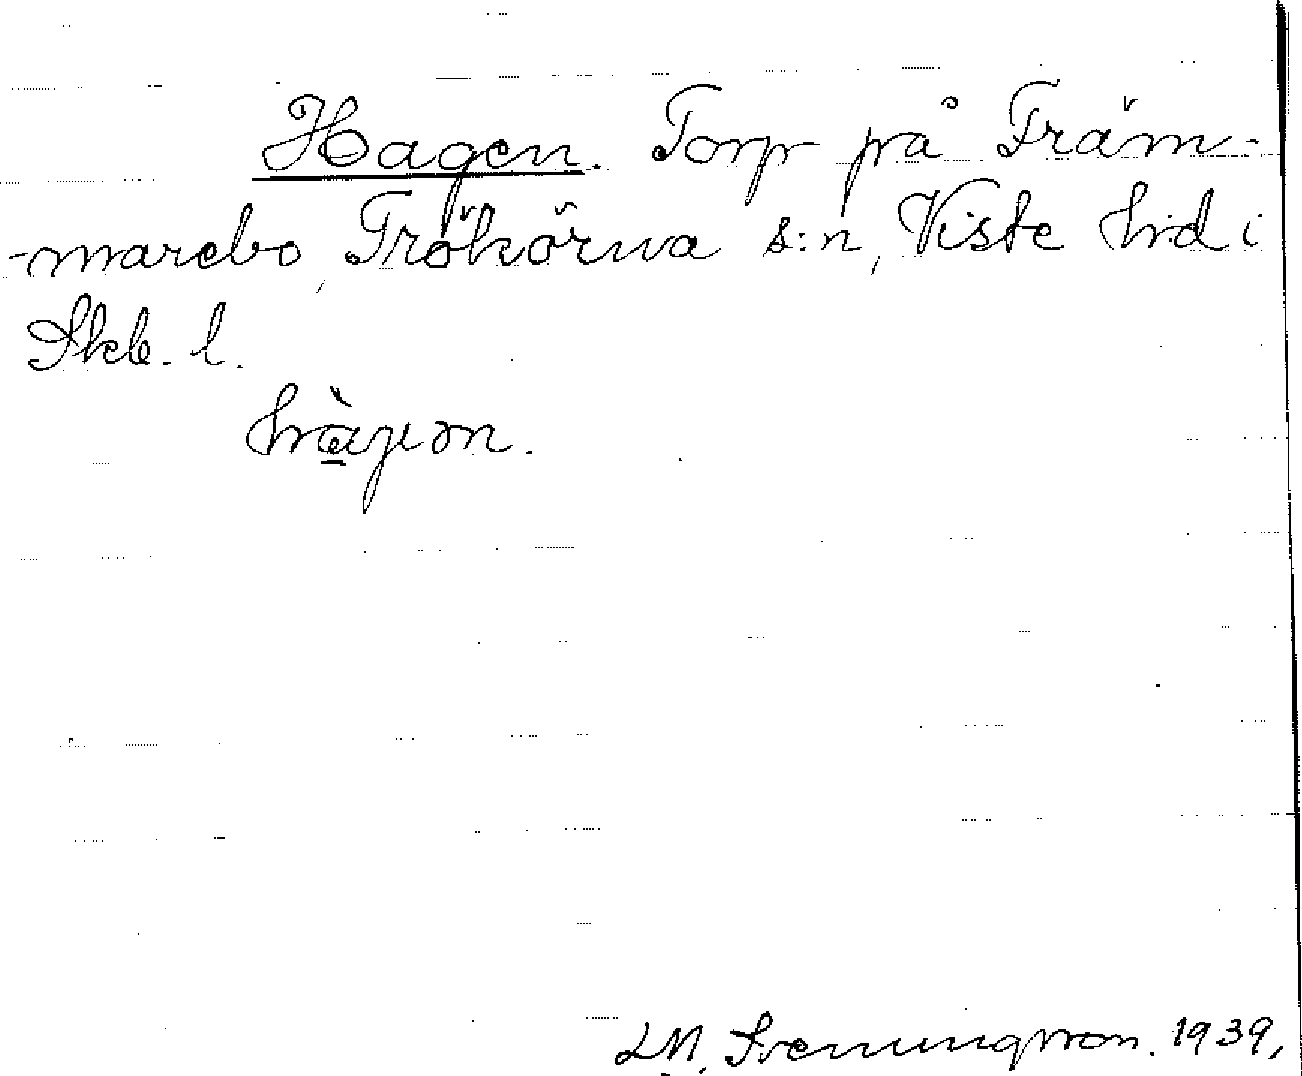 Hagen. Torp på Träm-
-marebo, Trökörna s:n, Viste hrd i
Skb. l.
L M. Svenungsson. 1939,